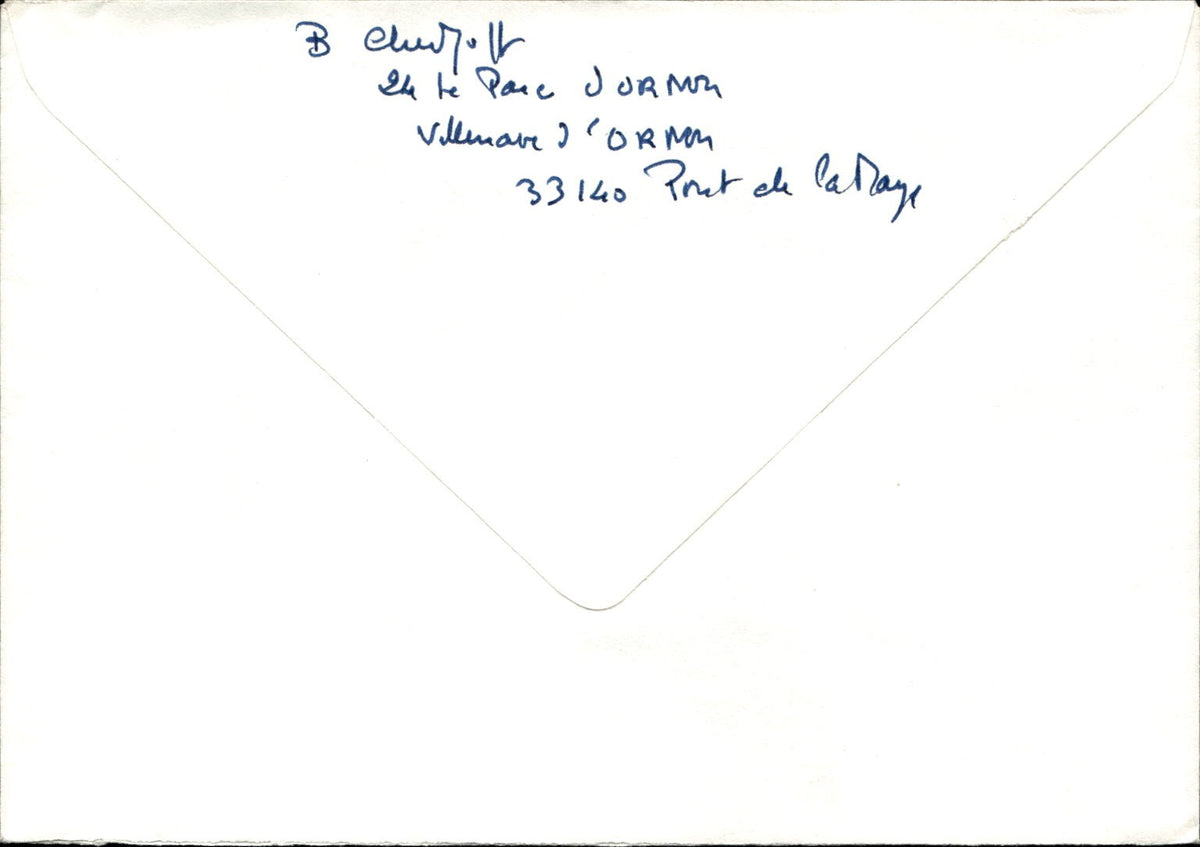 B
24 Le Parc d'ORNON
Villenave d'ORNON
33140 Pont de la Maye